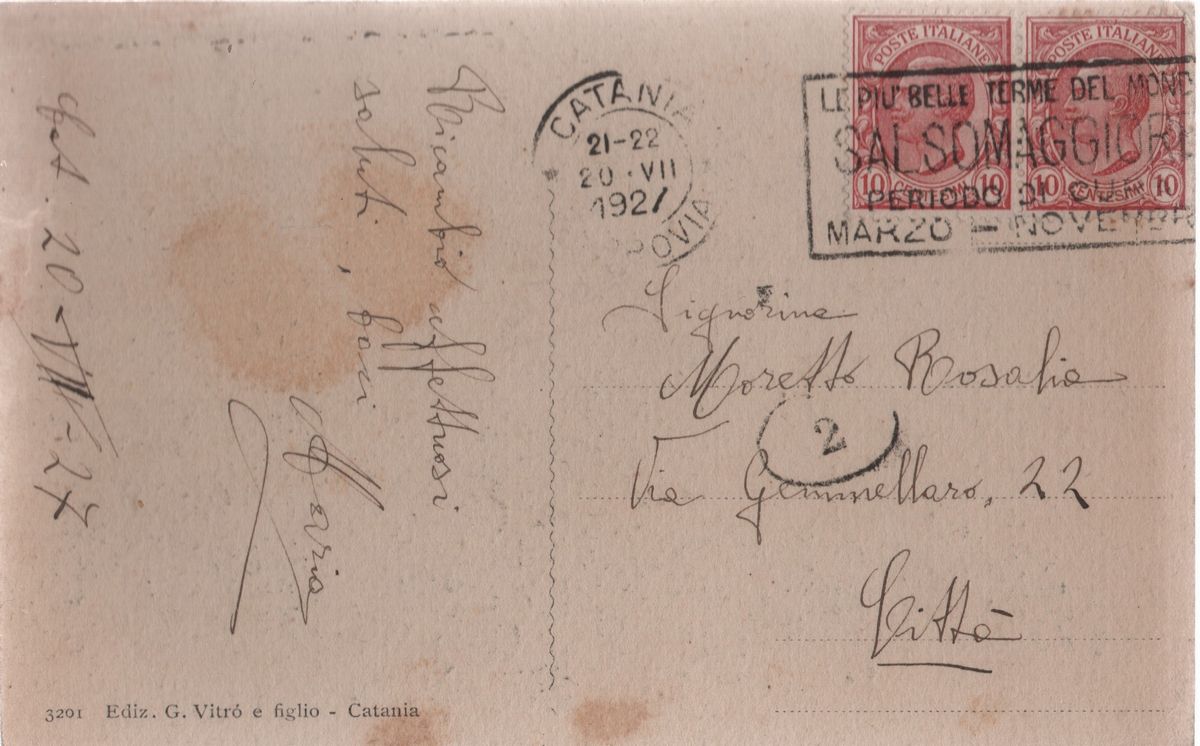 Cat. 20-VII-27
Ricambio affettuosi
saluti, baci
Maria
3201 Ediz. G. Vitró e figlio - Catania
CATANIA
21-22
20·VII
1927
OVIA
POSTE ITALIANE
10 CENTESIMI 10
POSTE ITALIANE
10 CENTESIMI 10
LE PIU' BELLE TERME DEL MOND
SALSOMAGGIORE
PERIODO DI CU
MARZO - NOVEMBR
Signorina
Moretto Rosalia
2
Via Gemmellaro, 22
Città